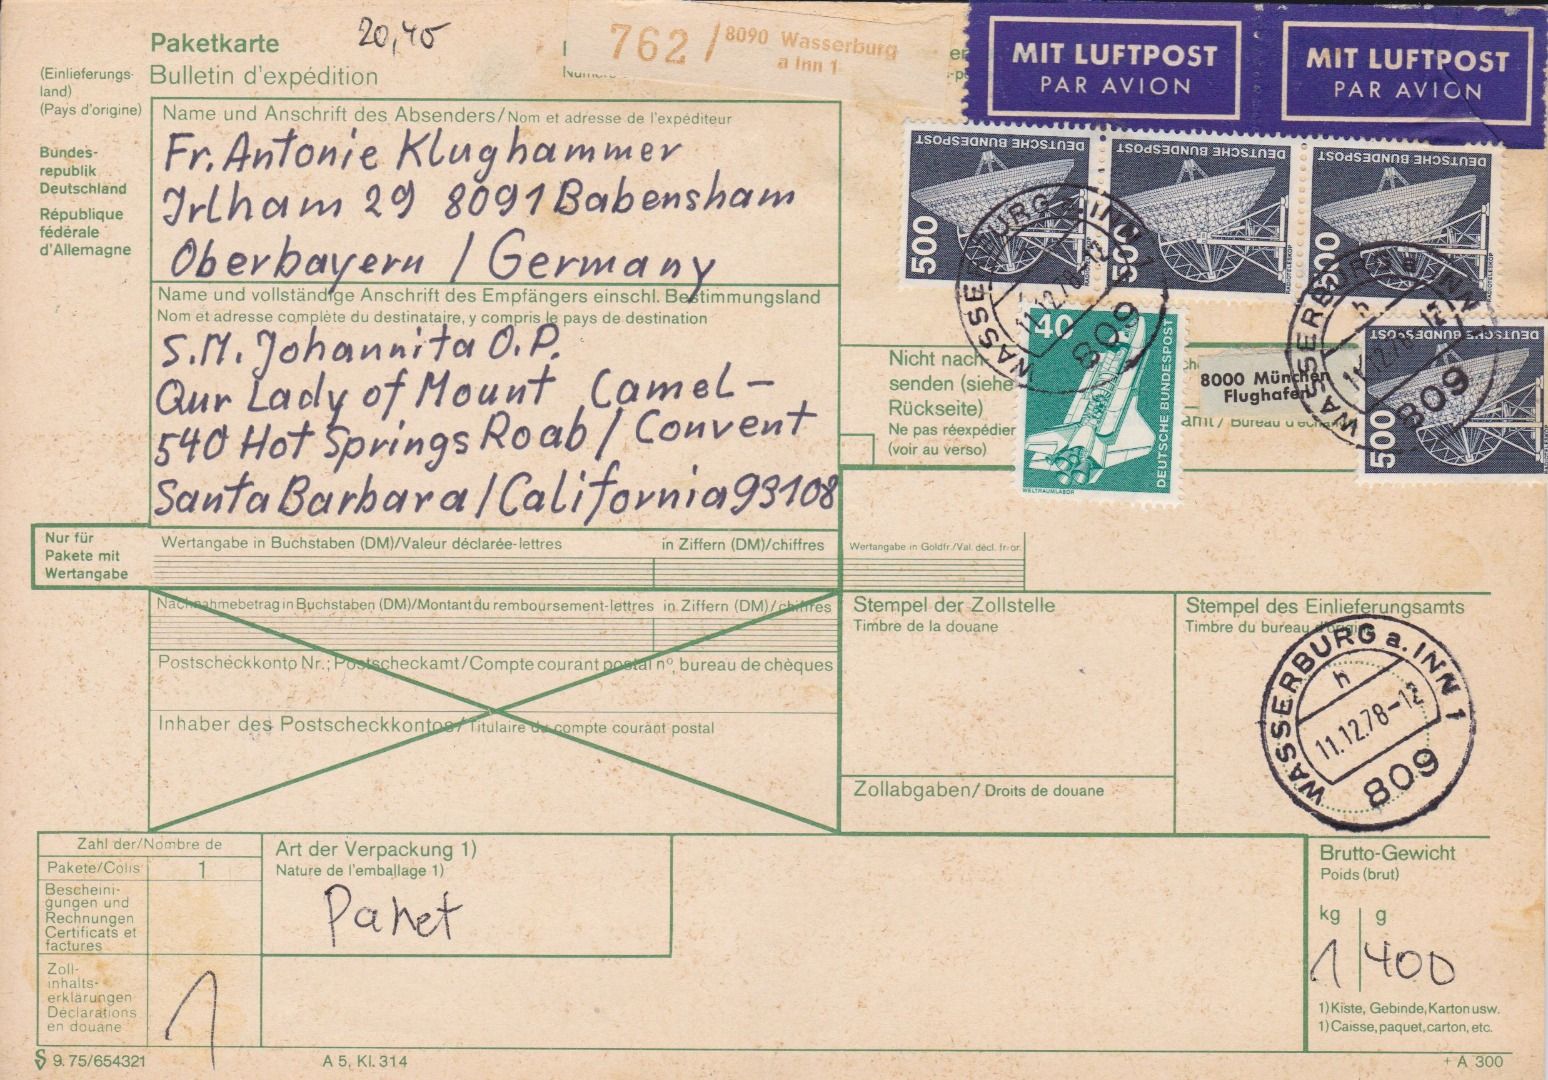 Paketkarte
20,40
Bulletin d'expédition
762 / 8090 Wasserburg
a Inn 1
MIT LUFTPOST
PAR AVION
MIT LUFTPOST
PAR AVION
(Einlieferungs-
land)
(Pays d'origine)
Bundes-
republik
Deutschland
République
fédérale
d'Allemagne
Name und Anschrift des Absenders/Nom et adresse de l'expéditeur
Fr. Antonie Klughammer
Irlham 29 8091 Babensham
Oberbayern / Germany
Name und vollständige Anschrift des Empfängers einschl. Bestimmungsland
Nom et adresse complète du destinataire, y compris le pays de destination
S.M. Johannita O.P.
Our Lady of Mount Camel-
540 Hot Springs Roab / Convent
Santa Barbara / California 93108
DEUTSCHE BUNDESPOST
500
RADIOTELESKOP
DEUTSCHE BUNDESPOST
500
RADIOTELESKOP
DEUTSCHE BUNDESPOST
500
RADIOTELESKOP
DEUTSCHE BUNDESPOST
500
40
DEUTSCHE BUNDESPOST
WELTRAUMLABOR
WASSERBURG a. INN 1
11.12.78-12
809
WASSERBURG a. INN 1
h
11.12.78-12
809
Nicht nach-
senden (siehe
Rückseite)
Ne pas réexpédier
(voir au verso)
8000 München
Flughafen
amt / Bureau d'échan
Nur für
Pakete mit
Wertangabe
Wertangabe in Buchstaben (DM)/Valeur déclarée-lettres in Ziffern (DM)/chiffres
Wertangabe in Goldfr./Val. décl. fr-or.
Nachnahmebetrag in Buchstaben (DM)/Montant du remboursement-lettres in Ziffern (DM)/chiffres
Postscheckkonto Nr.; Postscheckamt/Compte courant postal n°, bureau de chèques
Inhaber des Postscheckkontos/Titulaire du compte courant postal
Stempel der Zollstelle
Timbre de la douane
Zollabgaben/ Droits de douane
Stempel des Einlieferungsamts
Timbre du bureau d'origine
WASSERBURG a. INN 1
h
11.12.78-12
809
Zahl der/Nombre de
Pakete/Colis 1
Bescheini-
gungen und
Rechnungen
Certificats et
factures
Zoll-
inhalts-
erklärungen
Déclarations
en douane
1
Art der Verpackung 1)
Nature de l'emballage 1)
Paket
Brutto-Gewicht
Poids (brut)
kg g
1 400
1) Kiste, Gebinde, Karton usw.
1) Caisse, paquet, carton, etc.
9.75/654321
A 5, Kl. 314
+ A 300